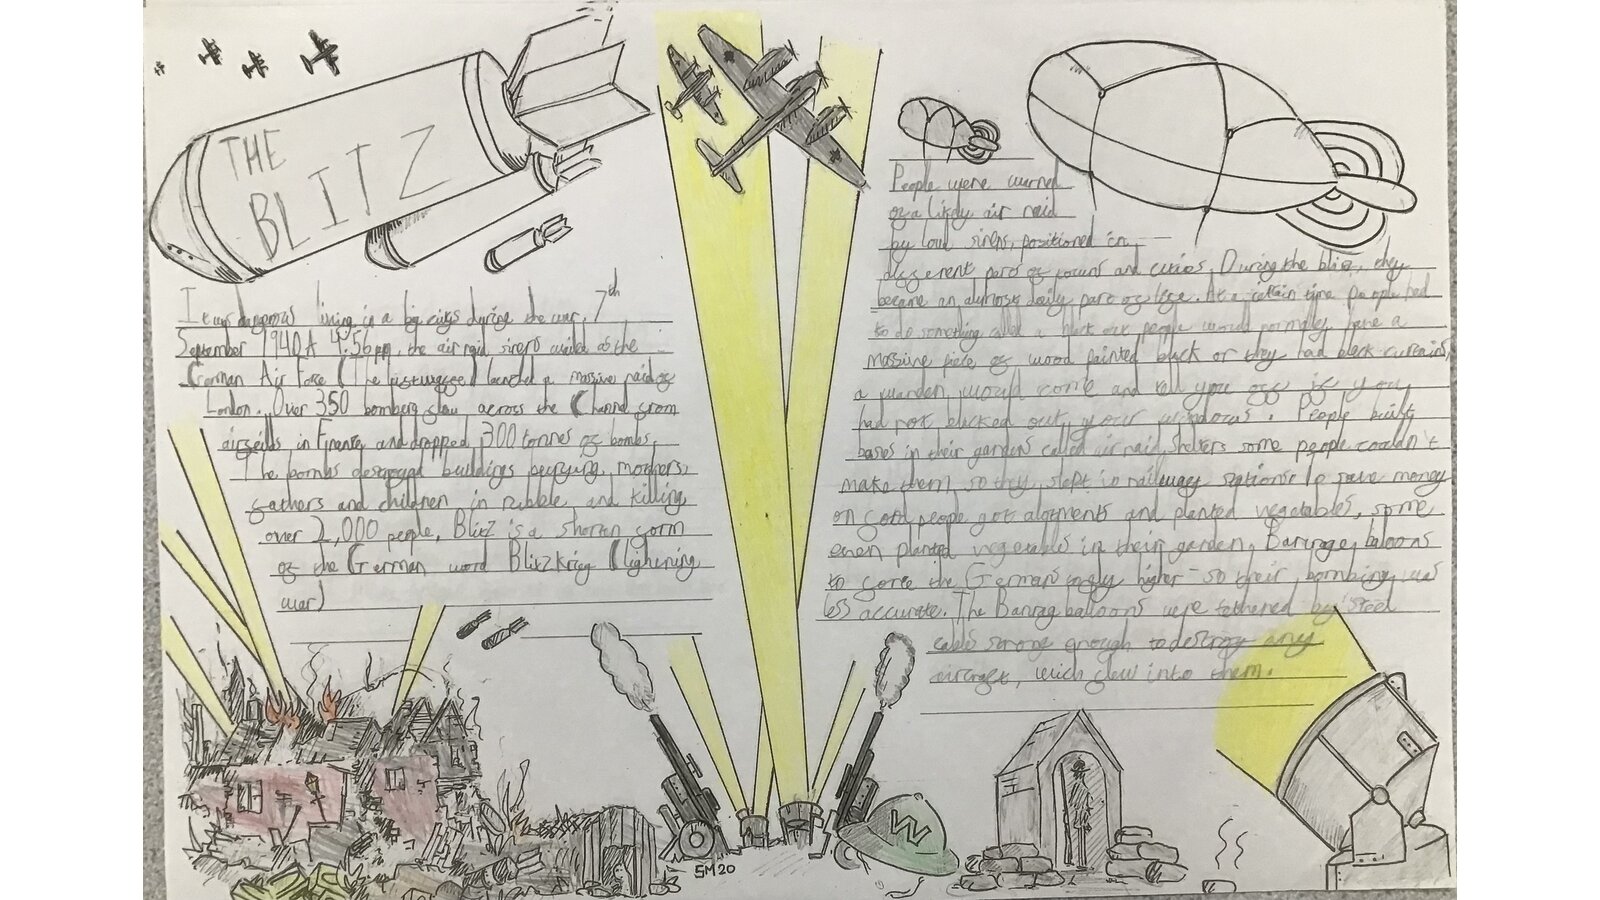 THE
BLITZ
It was dangerous living in a big citys during the war. 7th
September 1940 A 4:56pm, the air raid sirens wailed as the
German Air Force (The luftwaffe) launched a massive raid of
London. Over 350 bombers flew across the Channel from
airfeilds in France and dropped 300 tonnes of bombs.
The bombs destroyed buildings burying mothers,
fathers and children in rubble and killing
over 2,000 people. Blitz is a shorten form
of the German word Blitzkrieg (lightening
war)
People were warned
of a likely air raid
by loud sirens, positioned in
different pars of towns and cities. During the blitz, they
became an almost daily part of life. At a certain time people had
to do something called a black out people would normally have a
massive piece of wood painted black or they had black curtains,
a warden would come and tell you off if you
had not blacked out your windows. People built
bases in their gardens called air raid shelters some people couldn't
make them so they slept in railway stations to save money
on food people got alotments and planted vegetables, some
even planted vegetables in their garden. Barrage baloons
to force the Germans to fly higher - so their bombing was
less accurate. The Barrag baloons were tethered by steel
cables strong enough to destroy any
aircraft, wich flew into them.
W
SM20